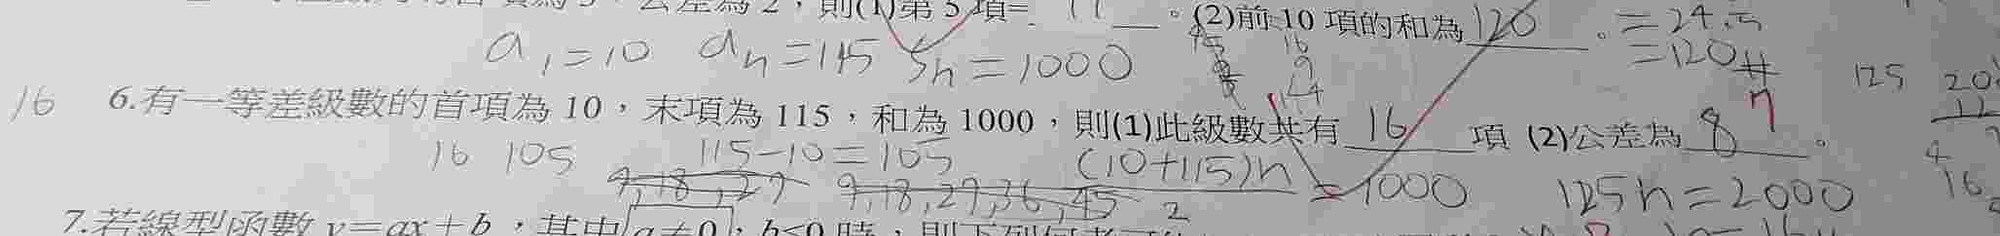 公差為2，則(1)第5項= 11 。(2)前10項的和為 120 。 =24.5
=120#
a₁=10 aₙ=115 Sn=1000
125
16 6.有一等差級數的首項為10，末項為115，和為1000，則(1)此級數共有 16 項 (2)公差為 8 7 。
16 105 115-10=105 (10+115)n/2 =1000 125n=2000
9,18,27 9,18,27,36,45
7.若線型函數 y=ax+b，其中 a≠0，b<0時，則下列何者